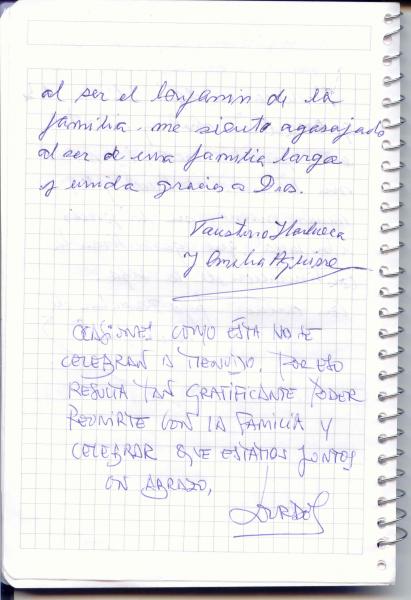 al ser el benjamin de la
familia me siento agasajado
al ser de una familia larga
y unida gracias a Dios.
Faustino
y Amalia Aguirre
OCASIONES COMO ESTA NO SE
CELEBRAN A MENUDO. POR ESO
RESULTA TAN GRATIFICANTE PODER
REUNIRTE CON LA FAMILIA Y
CELEBRAR QUE ESTAMOS JUNTOS
UN ABRAZO,
LOURDES